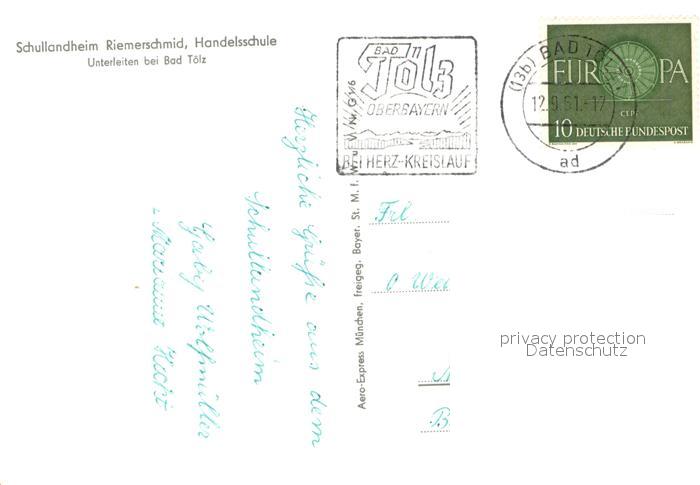 Schullandheim Riemerschmid, Handelsschule
Unterleiten bei Bad Tölz
BAD
Tölz
OBERBAYERN
BEI HERZ-KREISLAUF
(13b) BAD TÖLZ
12.9.61.-17
ad
EUROPA
CEPT
10 DEUTSCHE BUNDESPOST
Herzliche Grüße aus dem
Schullandheim
Gaby Wolfmüller
Aero-Express München, freigeg. Bayer. St. M. f. W. u. V. Nr. G 5/6
Frl
O Wei
B
privacy protection
Datenschutz